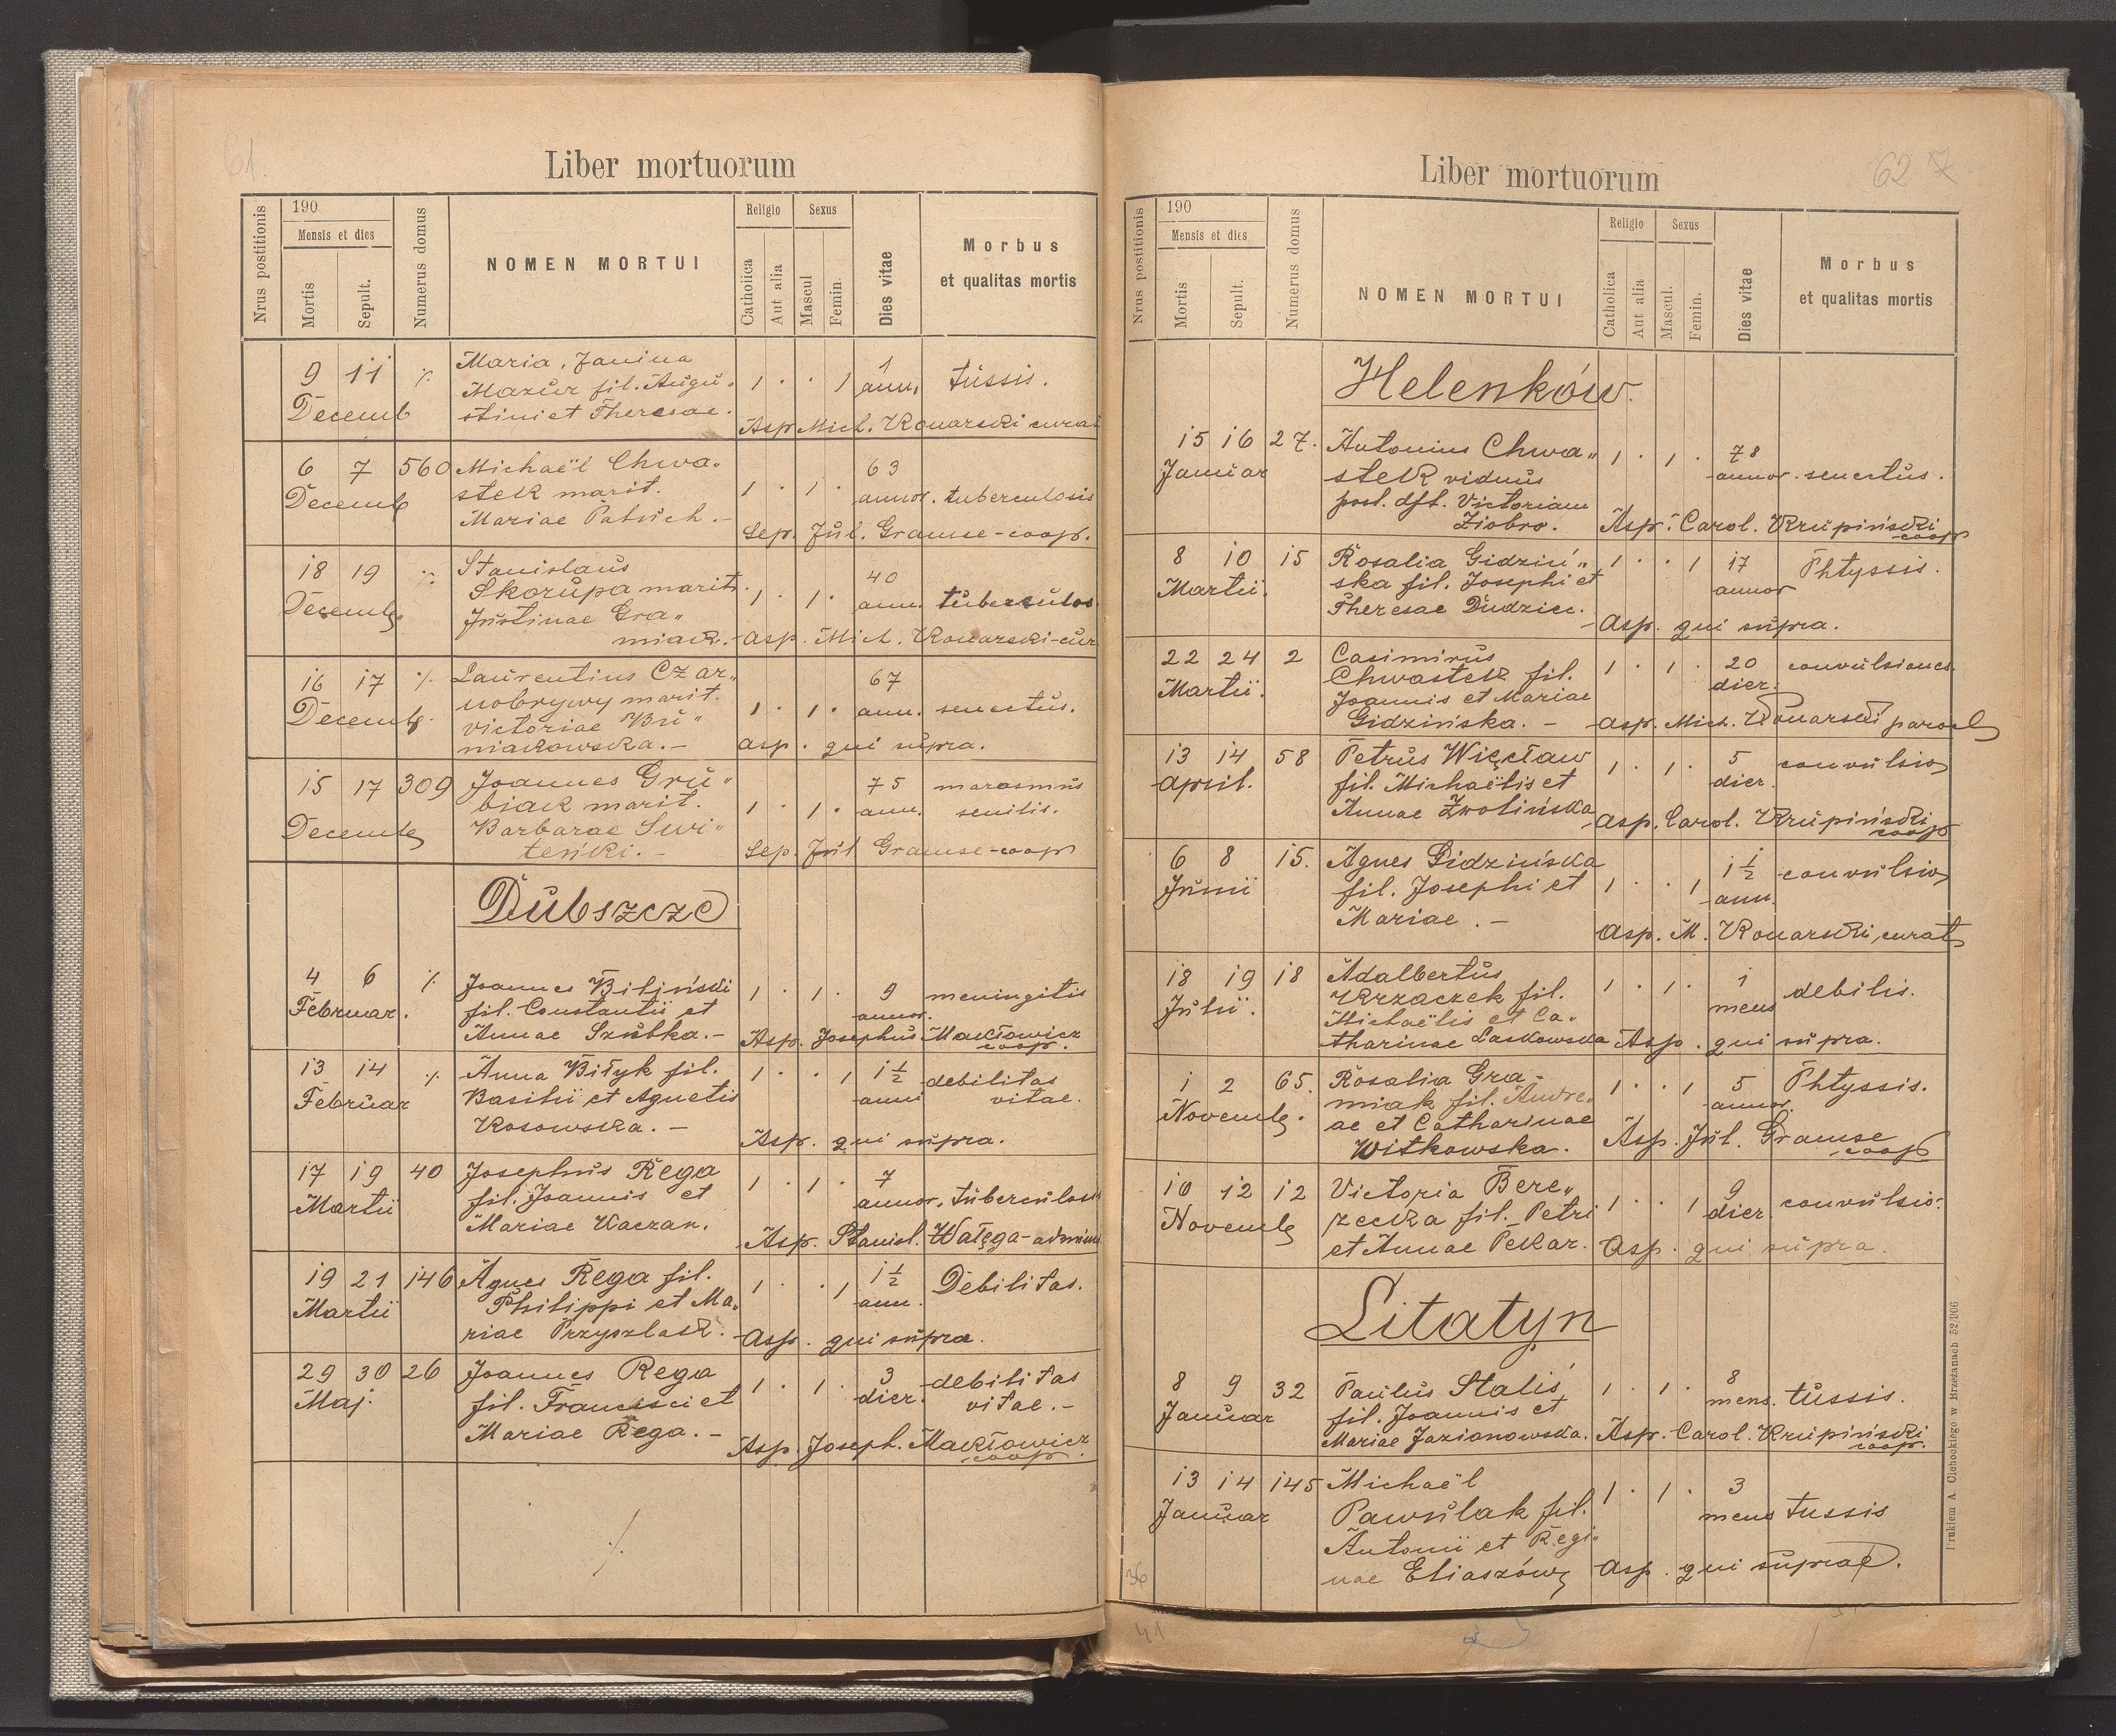 61.
Liber mortuorum
Nrus postitionis
190
Mensis et dies
Mortis
Sepult.
Numerus domus
NOMEN MORTUI
Religio
Catholica
Aut alia
Sexus
Mascul
Femin.
Dies vitae
Morbus
et qualitas mortis
9 11 ./. Maria, Janina 1
Mazur fil. Augu„ 1 · · 1 ann. tussis.
Decemb stini et Theresae. Asp Mich. Konarski curat
6 7 560 Michaël Chwa„ 63
Decemb stek marit. 1 · 1 · annor. tuberculosis
Mariae Patuch.— Sep. Jul. Gramse-coop.
18 19 ./. Stanislaus 40
Decemb. Skorupa marit. 1 · 1 · ann. tuberculos.
Justinae Gra„
miak.- asp. Mich. Konarski-cur
16 17 ./. Laurentius Czar„ 67
Decemb. nobrywy marit. 1 · 1 · ann. senectus.
victoriae Bu„
niakowska.— asp. qui supra.
15 17 309 Joannes Gru„ 75 marasmus
Decemb biak marit. 1 · 1 · ann. senilis.
Barbarae Swi„
teńki.— Sep. Jul Gramse-coop
Dubszcze
4 6 ./. Joannes Biliński 1 · 1 · 9 meningitis
Februar. fil. Constantii et annor.
Annae Szubka.— Asp. Josephus Makłowicz
coop.
13 14 ./. Anna Biłyk fil. 1 · · 1 1½ debilitas
Februar Basilii et Agnetis anni vitae.
Kosowska.— Asp. qui supra.
17 19 40 Josephus Rega 1 · 1 · 7
Martii fil. Joannis et annor. tuberculosis
Mariae Kaczan. Asp. Stanisl. Wałęga-admin
19 21 146 Agnes Rega fil. 1 · · 1 1½ Debilitas.
Martii Philippi et Ma„ ann.
riae Przyszlak. -asp. qui supra.
29 30 26 Joannes Rega 1 · 1 · 3 debilitas
Maj. fil. Francisci et dier. vitae.—
Mariae Rega.— Asp. Joseph. Makłowicz
coop.
./.
62 7
Liber mortuorum
Nrus postitionis
190
Mensis et dies
Mortis
Sepult.
Numerus domus
NOMEN MORTUI
Religio
Catholica
Aut alia
Sexus
Mascul.
Femin.
Dies vitae
Morbus
et qualitas mortis
Helenków.
15 16 27. Antonius Chwa„ 1 · 1 · 78
Januar stek viduus annor. senectus.
post. dft. Victoriam
Ziobro. Asp. Carol. Krupiński
coop
8 10 15 Rosalia Gidziń„ 1 · · 1 17 Phtyssis.
Martii. ska fil. Josephi et annor
Theresae Dudzicz. -asp. qui supra.
22 24 2 Casimirus 1 · 1 · 20 convulsiones
Martii. Chwastek fil. dier.
Joannis et Mariae
Gidzińska.— asp. Mich. Konarski paroch
13 14 58 Petrus Więcław 1 · 1 · 5 convulsio
April. fil. Michaëlis et dier.
Annae Zwolińska asp. Carol. Krupiński
coop
6 8 15. Agnes Gidzińska 1½ convulsio
Junii fil. Josephi et 1 · · 1 ann.
Mariae.— asp. M. Konarski, curat
18 19 18 Adalbertus 1 · 1 · 1 debilis.
Julii. Krzaczek fil. mens
Michaëlis et Ca„
tharinae Laskowska Asp. qui supra.
1 2 65. Rosalia Gra- 1 · · 1 5 Phtyssis.
Novemb. miak fil. Andre„ annor.
ae et Catharinae Asp. Jul. Gramse
Witkowska. coop
10 12 12 Victoria Bere„ 1 · · 1 9 convulsio.
Novemb zecka fil. Petri dier.
et Annae Pekar. asp. qui supra.
Litatyn
8 9 32 Paulus Stalis 1 · 1 · 8
Januar fil. Joannis et mens. tussis.
Mariae Jazianowska. Asp. Carol. Krupiński
coop.
13 14 145 Michaël 1 · 1 · 3
Januar Pawulak fil. mens tussis
Antonii et Regi„
nae Eliaszów asp. qui supra.
36
41
Drukiem A. Cichockiego w Brzeżanach 52/906